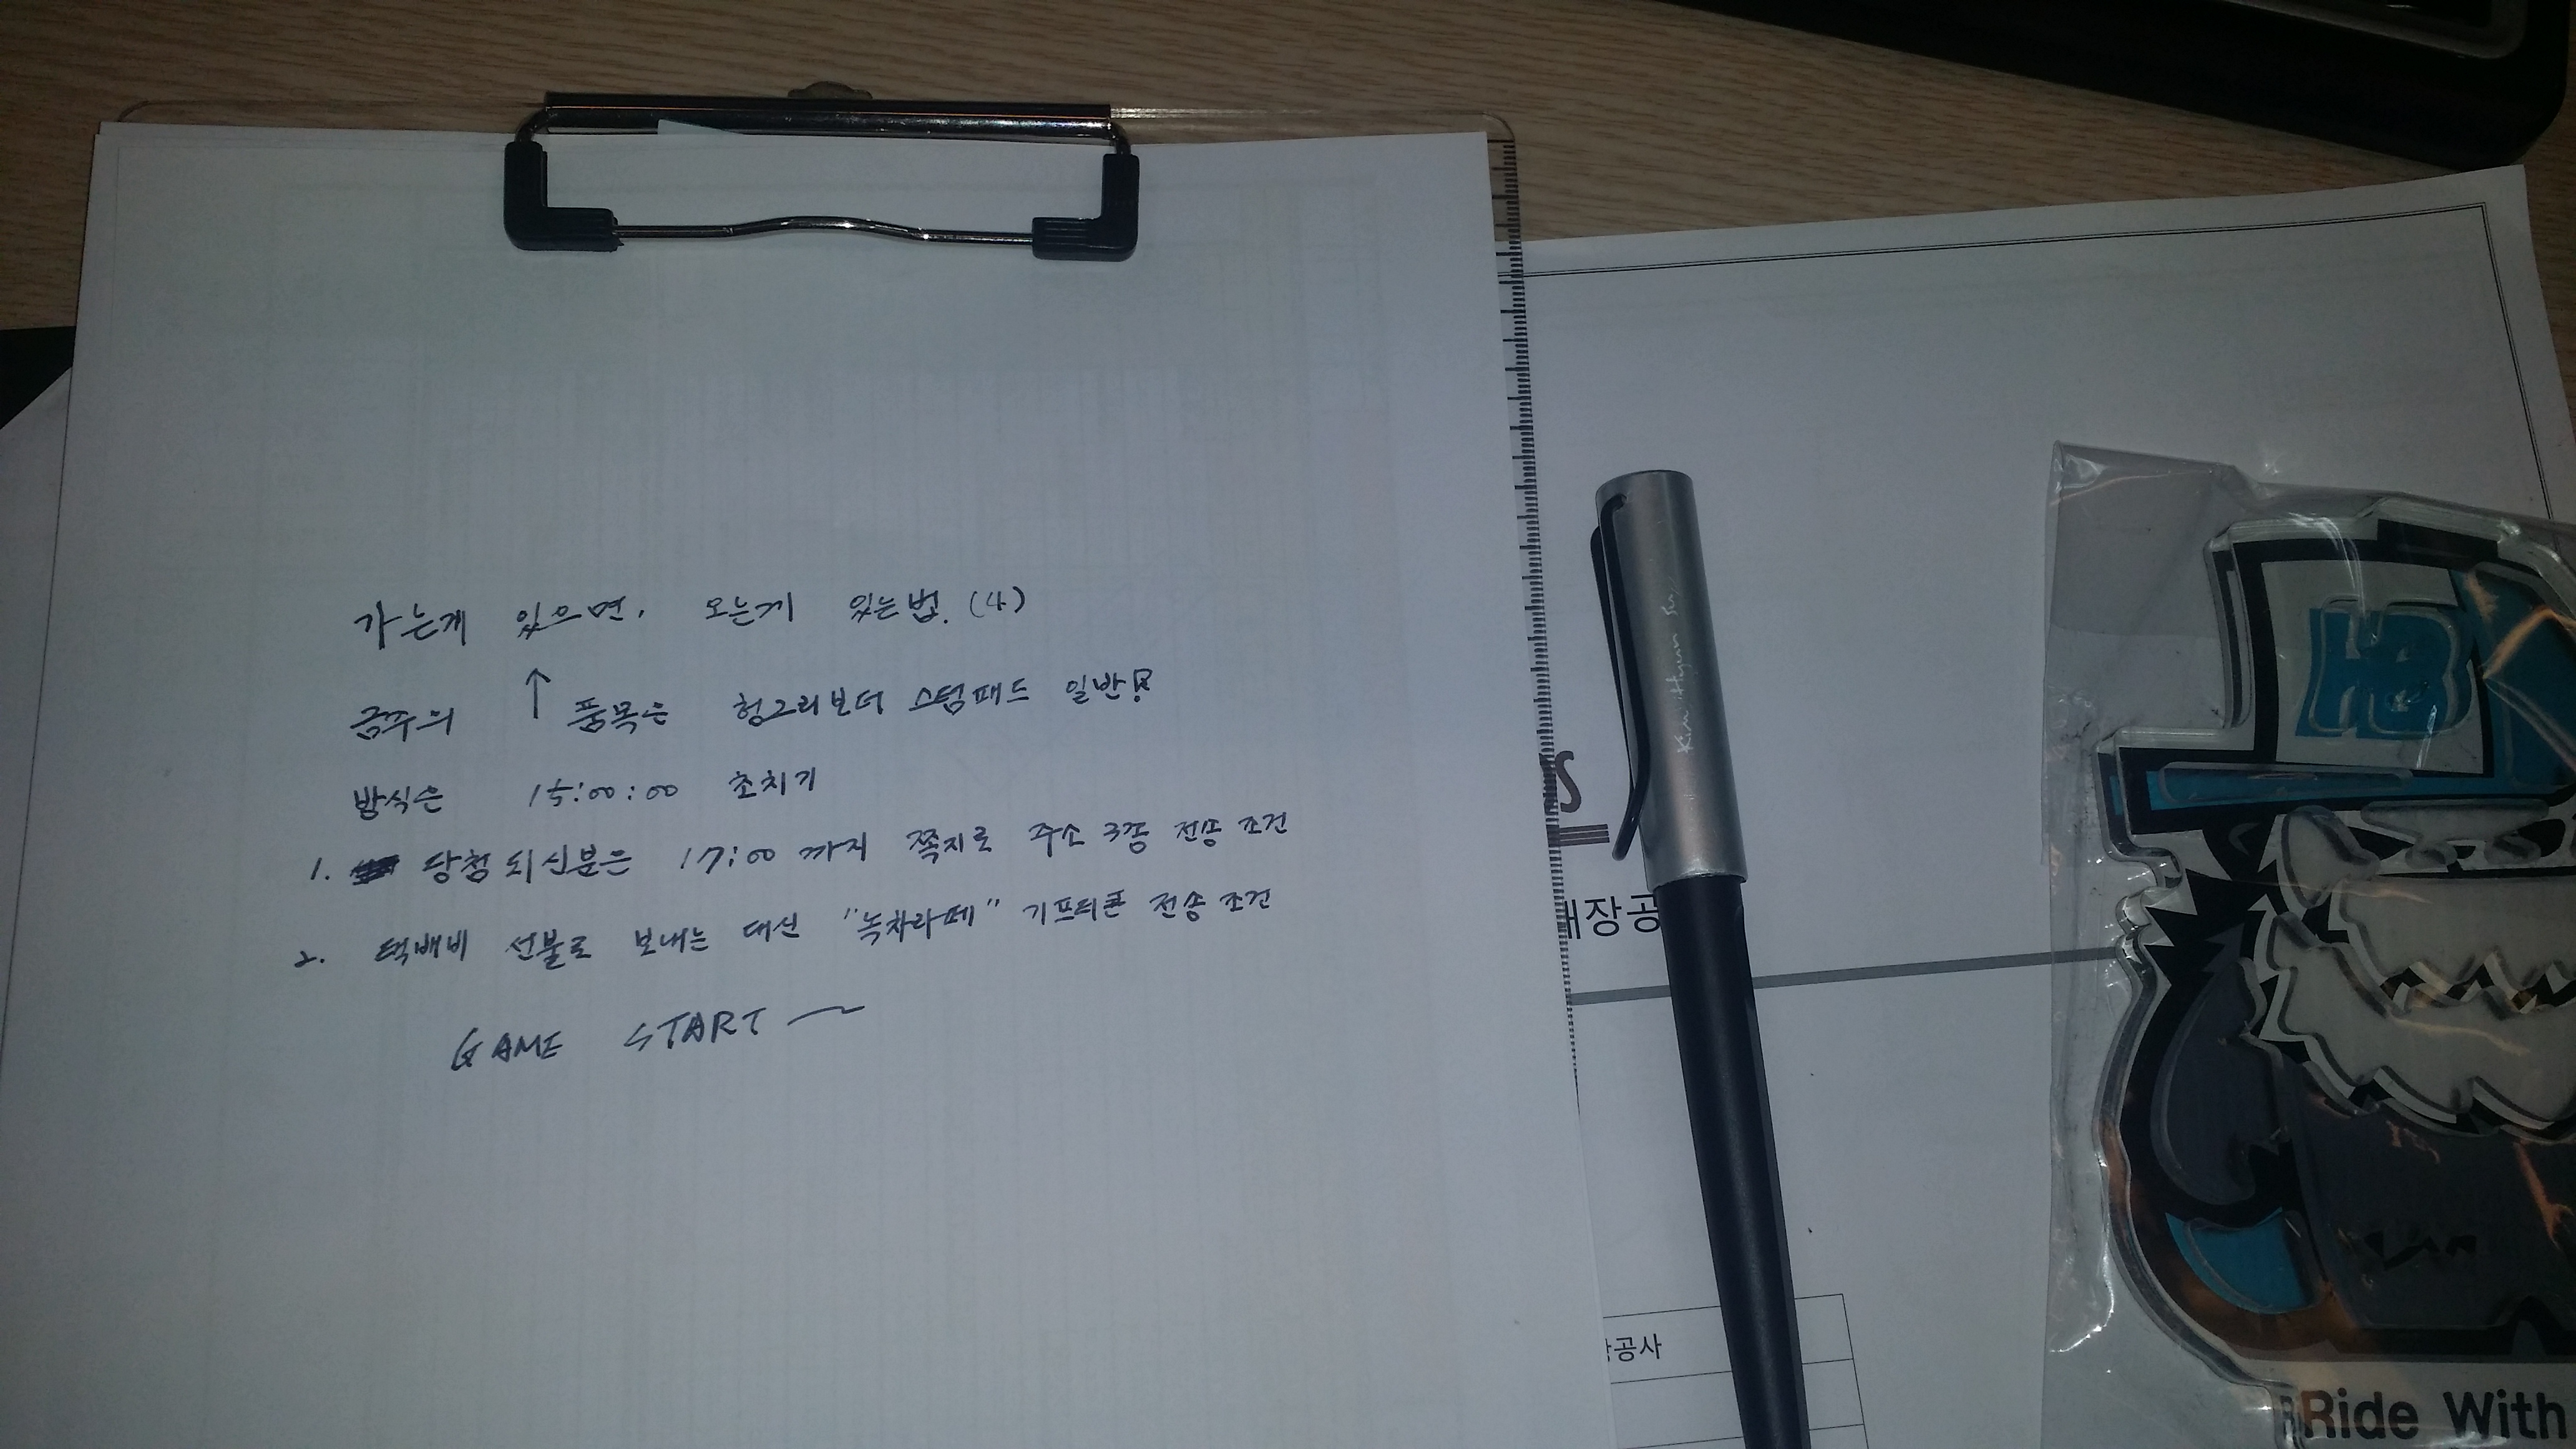 가는게 있으면, 오는게 있는법. (4)
금주의 ↑ 품목은 헝그리보더 스텀패드 일반!
방식은 15:00:00 초치기
1. 당첨되신분은 17:00 까지 쪽지로 주소 3종 전송 조건
2. 택배비 선불로 보내는 대신 "녹차라떼" 기프티콘 전송 조건
GAME START ~
Kim Hyun
S
내장공
공사
HB
Ride With